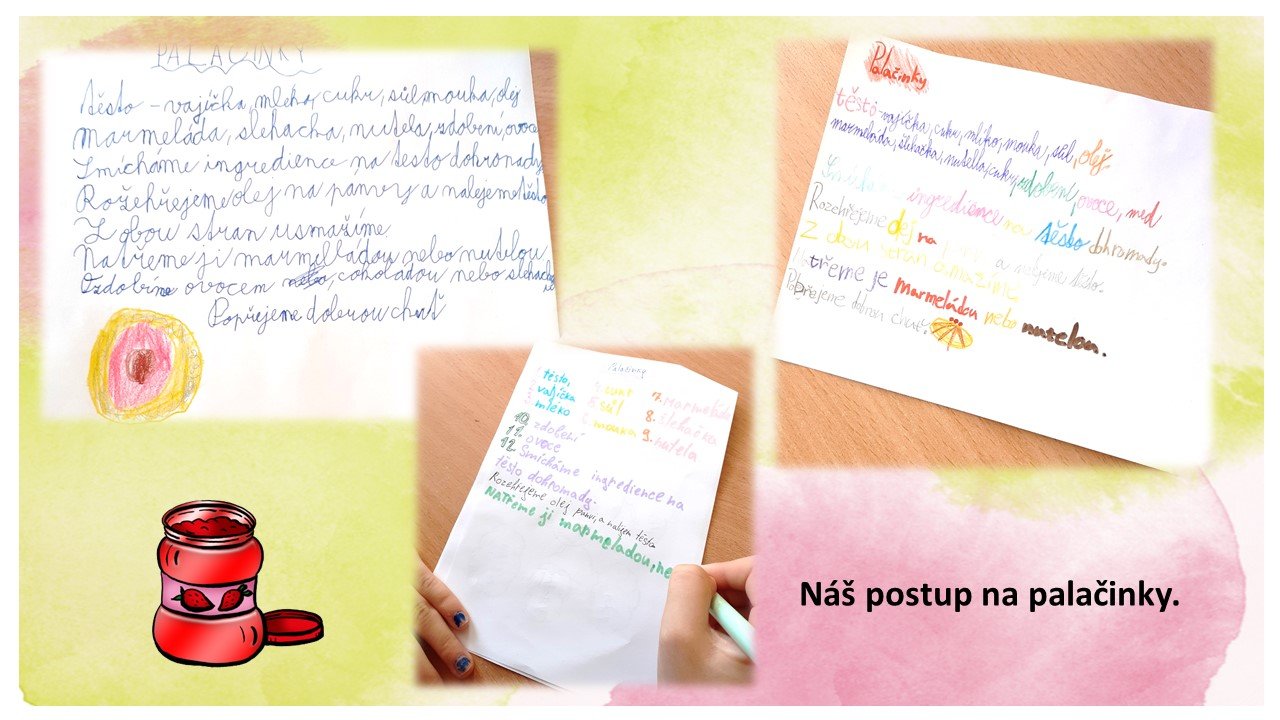 PALAČINKY
těsto – vajíčka, mléko, cukr, sůl, mouka, olej
Marmeláda, šlehačka, nutela, zdobení, ovoce
Smícháme ingredience na těsto dohromady
Rozehřejeme olej na pánvy a nalejeme těsto
Z obou stran usmažíme
Natřeme ji marmeládou nebo nutelou
Ozdobíme ovocem čokoládou nebo šlehačkou
Popřejeme dobrou chuť
Palačinky
těsto vajíčka, cukr, mlíko, mouka, sůl, olej
marmeláda, šlehačka, nutella, cukr, zdobení, ovoce, med
ingredience na těsto dohromady.
Rozehřejeme olej na a nalijeme těsto.
Z obou stran
třeme je marmeládou nebo nutelou.
Popřejeme dobrou chuť.
Palačinky
těsto,
vajíčka
mléko
5. sůl
6. mouka
7. marmeláda
8. šlehačka
9. nutela
10. zdobení
11. ovoce
12. Smícháme ingredience na
těsto dohromady.
Rozehřejeme olej panvi, a nalijem těsto
NATřeme ji marmeladou, ne
Náš postup na palačinky.